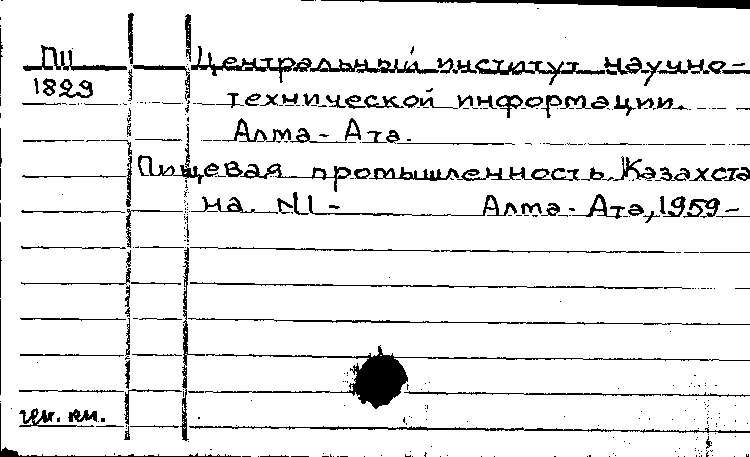 ПII
1829
Центральный институт научно-
технической информации.
Алма-Ата.
Пищевая промышленность Казахста
на. №1- Алма-Ата, 1959-